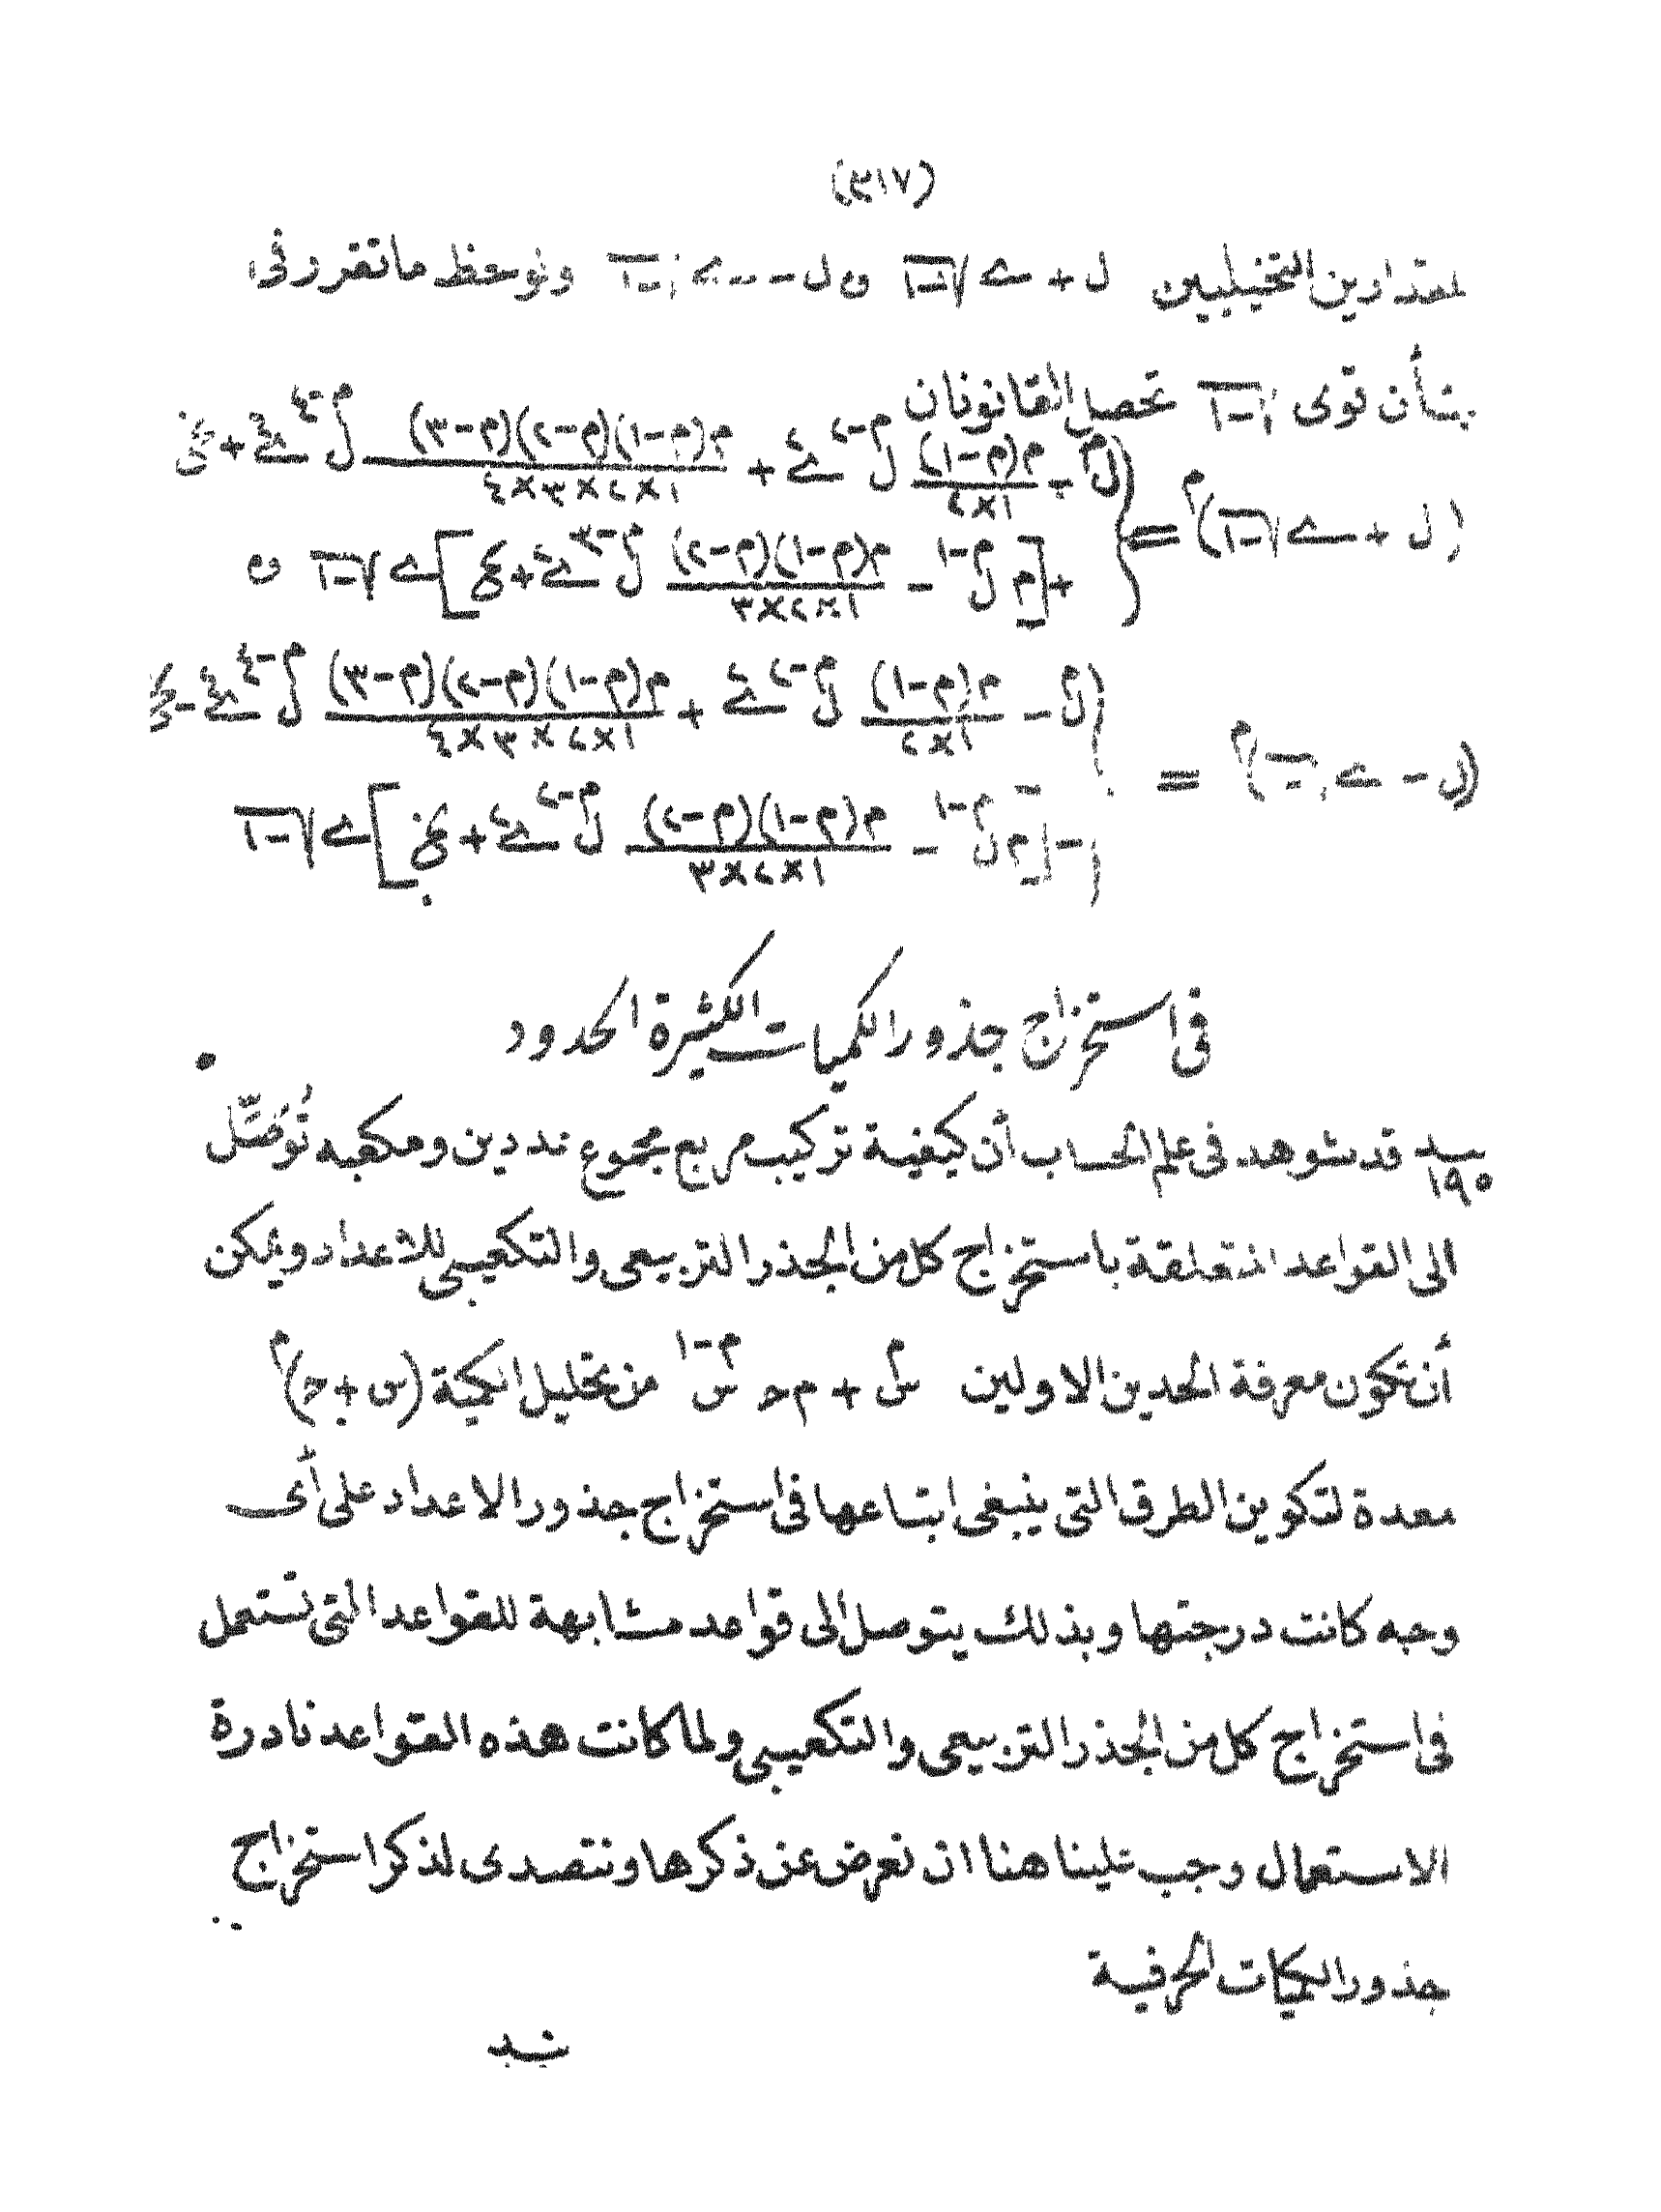 (٣١٧)
لمقدارين التخيليين ل + ے √-١ و ل - ے √-١ ولوحظ ما تقرر في
شأن قوى √-١ تحصل القانونان
(ل + ے √-١)^م = { ل^م - م(م-١)/١×٢ ل^(م-٢) ے^٢ + م(م-١)(م-٢)(م-٣)/١×٢×٣×٤ ل^(م-٤) ے^٤ + الخ
+ [م ل^(م-١) - م(م-١)(م-٢)/١×٢×٣ ل^(م-٣) ے^٢ + الخ] ے √-١ و
(ل - ے √-١)^م = { ل^م - م(م-١)/١×٢ ل^(م-٢) ے^٢ + م(م-١)(م-٢)(م-٣)/١×٢×٣×٤ ل^(م-٤) ے^٤ - الخ
- [م ل^(م-١) - م(م-١)(م-٢)/١×٢×٣ ل^(م-٢) ے^٢ + الخ] ے √-١
في استخراج جذور الكميات الكثيرة الحدود
١٩٥ قد شوهد في علم الحساب أن كيفية تركيب مربع مجموع عددين ومكعبه تُوَصِّل
الى القواعد المتعلقة باستخراج كل من الجذر التربيعى والتكعيبى للاعداد ويمكن
أن تكون معرفة الحدين الاولين س^م + م ح س^(م-١) من تحليل الكمية (س + ح)^م
معدة لتكوين الطرق التى ينبغى اتباعها فى استخراج جذور الاعداد على أىّ
وجه كانت درجتها وبذلك يتوصل الى قواعد مشابهة للقواعد التى تستعمل
فى استخراج كل من الجذر التربيعى والتكعيبى ولما كانت هذه القواعد نادرة
الاستعمال وجب علينا هنا ان نعرض عن ذكرها ونتصدى لذكر استخراج
جذور الكميات الحرفية